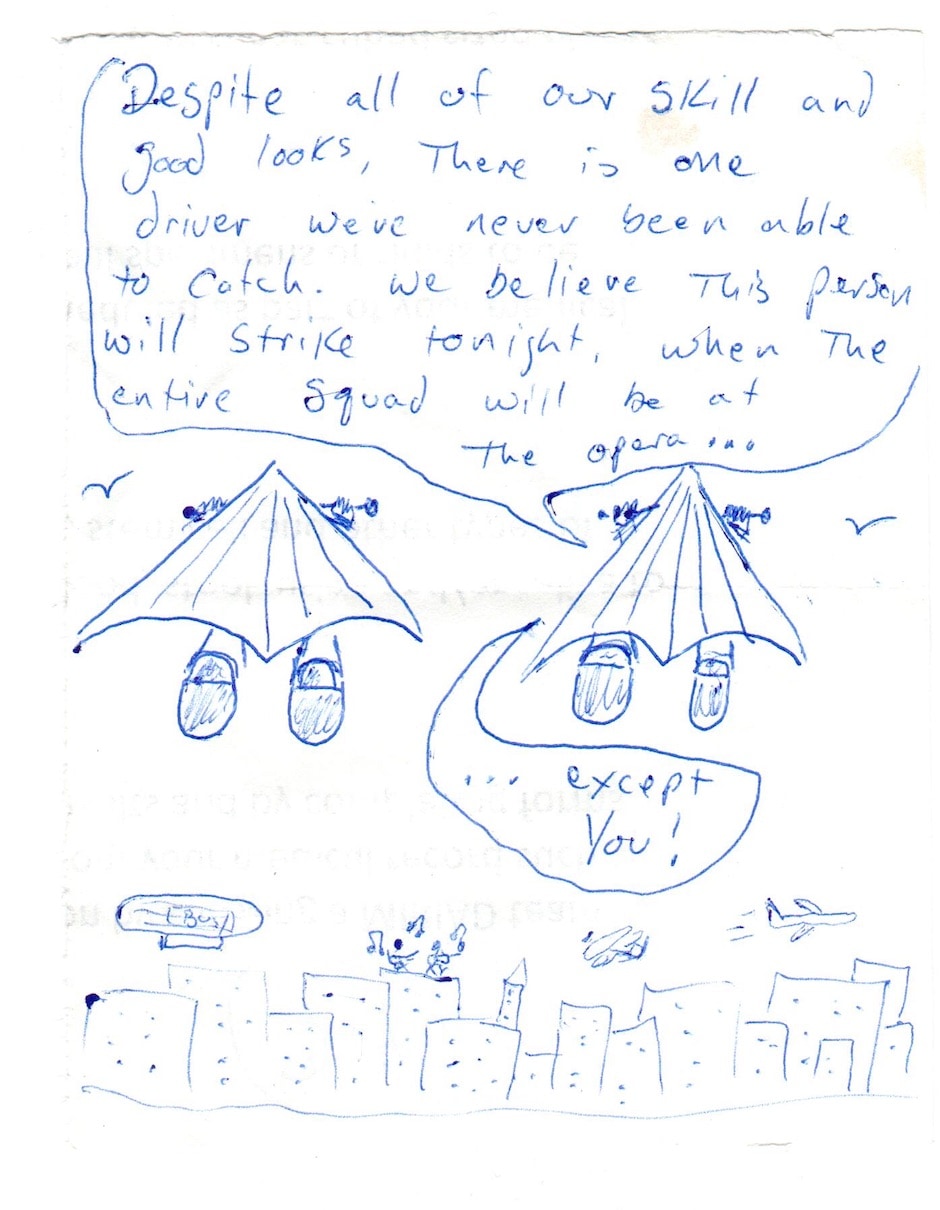 Despite all of our skill and
good looks, There is one
driver we've never been able
to catch. we believe This person
will Strike tonight, when The
entire Squad will be at
The opera...
... except
You!